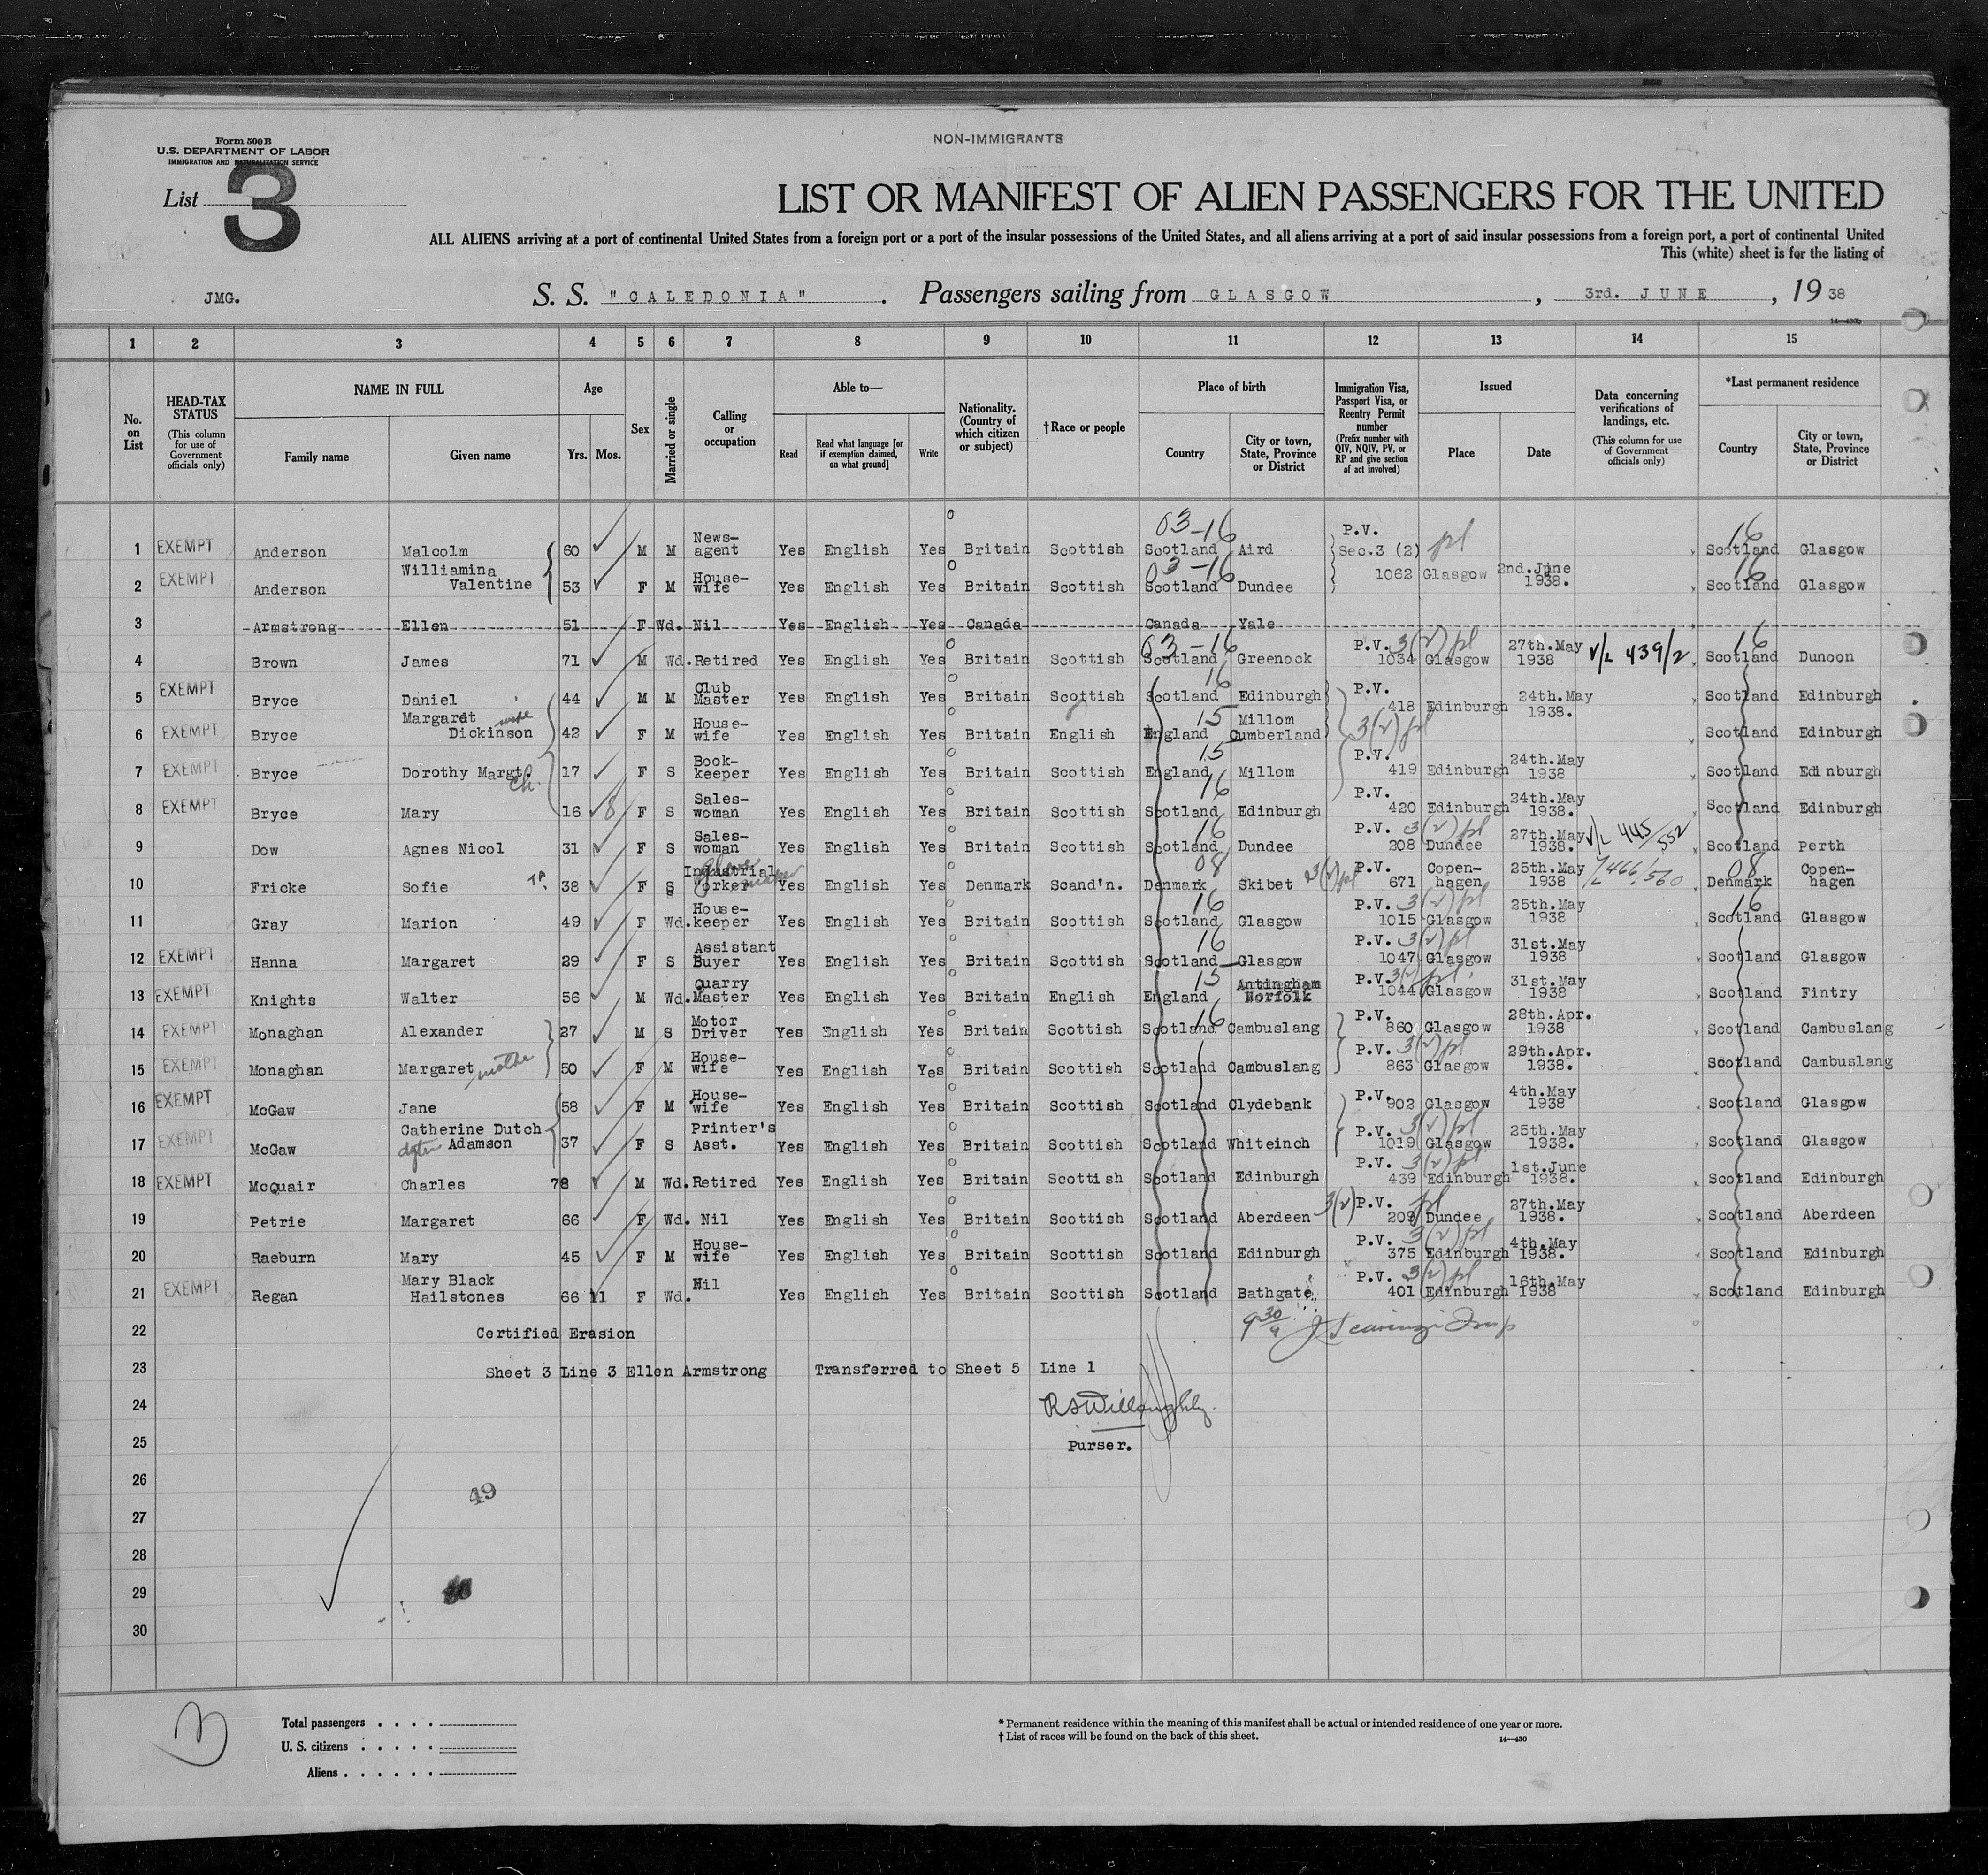 Form 500 B
U.S. DEPARTMENT OF LABOR
IMMIGRATION AND NATURALIZATION SERVICE
NON-IMMIGRANTS
List 3
LIST OR MANIFEST OF ALIEN PASSENGERS FOR THE UNITED
ALL ALIENS arriving at a port of continental United States from a foreign port or a port of the insular possessions of the United States, and all aliens arriving at a port of said insular possessions from a foreign port, a port of continental United
This (white) sheet is for the listing of
JMG. S. S. "CALEDONIA" . Passengers sailing from GLASGOW , 3rd. JUNE , 19 38
14—430b
1 2 3 4 5 6 7 8 9 10 11 12 13 14 15
No. on List
HEAD-TAX STATUS (This column for use of Government officials only)
NAME IN FULL Family name Given name
Age Yrs. Mos.
Sex
Married or single
Calling or occupation
Able to— Read Read what language [or if exemption claimed, on what ground] Write
Nationality. (Country of which citizen or subject)
†Race or people
Place of birth Country City or town, State, Province or District
Immigration Visa, Passport Visa, or Reentry Permit number (Prefix number with QIV, NQIV, PV, or RP and give section of act involved)
Issued Place Date
Data concerning verifications of landings, etc. (This column for use of Government officials only)
*Last permanent residence Country City or town, State, Province or District
1 EXEMPT Anderson Malcolm 60 M M News-agent Yes English Yes Britain Scottish 03-16 Scotland Aird P.V. Sec.3 (2) pl 16 Scotland Glasgow
2 EXEMPT Anderson Williamina Valentine 53 F M House-wife Yes English Yes Britain Scottish 03-16 Scotland Dundee 1062 Glasgow 2nd.June 1938. 16 Scotland Glasgow
3 Armstrong Ellen 51 F Wd. Nil Yes English Yes Canada Canada Yale
4 Brown James 71 M Wd. Retired Yes English Yes Britain Scottish 03-16 Scotland Greenock P.V. 3(2) pl 1034 Glasgow 27th.May 1938 V/L 439/2 16 Scotland Dunoon
5 EXEMPT Bryce Daniel 44 M M Club Master Yes English Yes Britain Scottish 16 Scotland Edinburgh P.V. 418 Edinburgh 24th.May 1938. Scotland Edinburgh
6 EXEMPT Bryce Margaret Dickinson wife 42 F M House-wife Yes English Yes Britain English 15 England Millom Cumberland 3(2) pl Scotland Edinburgh
7 EXEMPT Bryce Dorothy Margt. Ch. 17 F S Book-keeper Yes English Yes Britain Scottish 15 England Millom P.V. 419 Edinburgh 24th.May 1938 Scotland Edinburgh
8 EXEMPT Bryce Mary 16 8 F S Sales-woman Yes English Yes Britain Scottish 16 Scotland Edinburgh P.V. 420 Edinburgh 24th.May 1938. Scotland Edinburgh
9 Dow Agnes Nicol 31 F S Sales-woman Yes English Yes Britain Scottish 16 Scotland Dundee P.V. 3(2) pl 208 Dundee 27th.May 1938. V/L 445/552 Scotland Perth
10 Fricke Sofie 38 F S Industrial Worker Yes English Yes Denmark Scand'n. 08 Denmark Skibet 3(2) pl P.V. 671 Copen-hagen 25th.May 1938 V/L 466/560 08 Denmark Copen-hagen
11 Gray Marion 49 F Wd. House-keeper Yes English Yes Britain Scottish 16 Scotland Glasgow P.V. 3(2) pl 1015 Glasgow 25th.May 1938 16 Scotland Glasgow
12 EXEMPT Hanna Margaret 29 F S Assistant Buyer Yes English Yes Britain Scottish 16 Scotland Glasgow P.V. 3(2) pl 1047 Glasgow 31st.May 1938 Scotland Glasgow
13 EXEMPT Knights Walter 56 M Wd. Quarry Master Yes English Yes Britain English 15 England Antingham Norfolk P.V. 3(2) pl 1044 Glasgow 31st.May 1938 Scotland Fintry
14 EXEMPT Monaghan Alexander 27 M S Motor Driver Yes English Yes Britain Scottish 16 Scotland Cambuslang P.V. 860 Glasgow 28th.Apr. 1938 Scotland Cambuslang
15 EXEMPT Monaghan Margaret mother 50 F M House-wife Yes English Yes Britain Scottish Scotland Cambuslang P.V. 3(2) pl 863 Glasgow 29th.Apr. 1938. Scotland Cambuslang
16 EXEMPT McGaw Jane 58 F M House-wife Yes English Yes Britain Scottish Scotland Clydebank P.V. 902 Glasgow 4th.May 1938 Scotland Glasgow
17 EXEMPT McGaw Catherine Dutch Adamson 37 F S Printer's Asst. Yes English Yes Britain Scottish Scotland Whiteinch P.V. 3(2) pl 1019 Glasgow 25th.May 1938. Scotland Glasgow
18 EXEMPT McQuair Charles 78 M Wd. Retired Yes English Yes Britain Scottish Scotland Edinburgh P.V. 3(2) pl 439 Edinburgh 1st.June 1938. Scotland Edinburgh
19 Petrie Margaret 66 F Wd. Nil Yes English Yes Britain Scottish Scotland Aberdeen 3(2) P.V. pl 209 Dundee 27th.May 1938. Scotland Aberdeen
20 Raeburn Mary 45 F M House-wife Yes English Yes Britain Scottish Scotland Edinburgh P.V. 3(2) pl 375 Edinburgh 4th.May 1938. Scotland Edinburgh
21 EXEMPT Regan Mary Black Hailstones 66 11 F Wd. Nil Yes English Yes Britain Scottish Scotland Bathgate P.V. 3(2) pl 401 Edinburgh 16th.May 1938 Scotland Edinburgh
22 Certified Erasion
23 Sheet 3 Line 3 Ellen Armstrong Transferred to Sheet 5 Line 1
24 R S Willoughby.
25 Purser.
26 49
27
28
29
30
Total passengers . . . .
U. S. citizens . . . . .
Aliens . . . . . .
* Permanent residence within the meaning of this manifest shall be actual or intended residence of one year or more.
† List of races will be found on the back of this sheet.
14—430